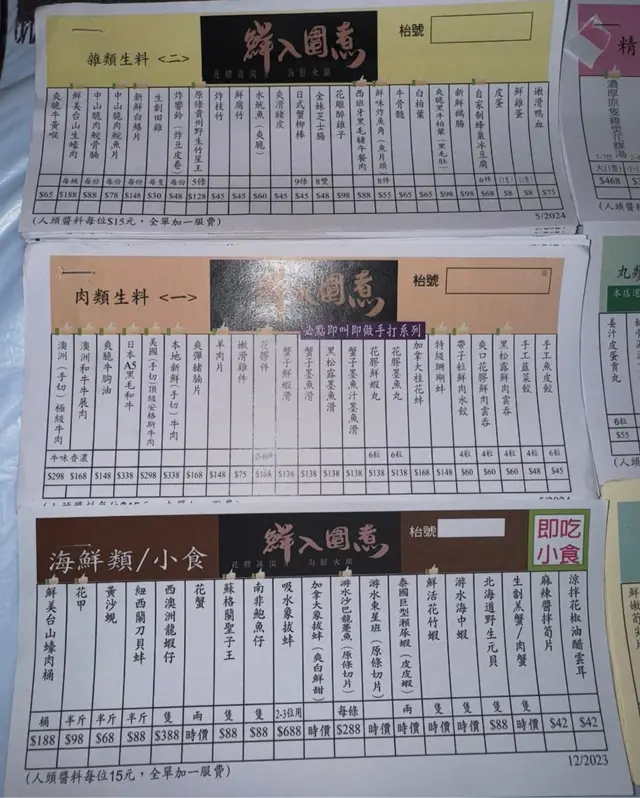 雜類生料 <二>
鮮入圍煮
枱號
嫩滑鴨血 $75
鮮雞蛋 (1隻) $8
皮蛋 (1隻) $8
自家制蜂巢冰豆腐 6件 $68
新鮮鵝腸 $98
爽脆黑牛柏葉（黑毛肚） $98
白柏葉 $65
牛骨髓 $65
鮮味炸魚角（魚片頭） 8件 $55
西班牙黑毛豬午餐肉 $88
花雕醉雞子 $98
金妹芝士腸 8隻 $48
日式蟹柳棒 9條 $45
爽滑豬皮 $45
水魷魚（爽脆） $60
鮮腐竹 $45
炸枝竹 $45
原條貴州野生竹笙王 5條 $128
炸響鈴（炸豆皮卷） 每份 $48
生劏田雞 每隻 $30
新鮮白鱔片 每份 $148
中山脆肉鯇魚片 每份 $78
中山脆肉鯇骨腩 每份 $88
鮮美台山生蠔肉 每桶 $188
爽脆牛黃喉 $65
(人頭醬料每位$15元，全單加一服費)
5/2024
肉類生料 <一>
鮮入圍煮
枱號
必點即叫即做手打系列
手工魚皮餃 6粒 $45
手工韮菜餃 4粒 $48
黑松露鮮肉雲吞 4粒 $60
爽口花膠鮮肉雲吞 4粒 $60
帶子粒鮮肉水餃 4粒 $60
特級珊瑚蚌 $148
加拿大桂花蚌 $168
花膠墨魚丸 6粒 $138
花膠鮮蝦丸 6粒 $138
蟹子墨魚汁墨魚滑 $138
黑松露墨魚滑 $138
蟹子墨魚滑 $138
蟹子鮮蝦滑 $138
花膠件 $168
嫩滑雞件 $75
羊肉片 $148
爽彈豬腩片 $168
本地新鮮（手切）牛肉 $338
美國（手切）頂級安格斯牛肉 $298
日本A5黑毛和牛 $338
爽脆牛胸油 $148
澳洲和牛牛展肉 $168
澳洲（手切）極級牛肉 $298
牛味香濃
海鮮類/小食
鮮入圍煮
枱號
即吃
小食
涼拌花椒油醋雲耳 $42
麻辣醬拌筍片 $42
生劏羔蟹/肉蟹 隻 時價
北海道野生元貝 隻 $88
游水海中蝦 隻 時價
鮮活花竹蝦 隻 時價
泰國巨型瀨尿蝦（皮皮蝦） 兩 時價
游水東星班（原條切片） 時價
游水沙巴龍躉魚（原條切片） 每條 $288
加拿大象拔蚌（爽白鮮甜） 時價
吸水象拔蚌 2-3位用 $688
南非鮑魚仔 隻 $88
蘇格蘭聖子王 隻 $88
花蟹 兩 時價
西澳洲龍蝦仔 隻 $388
紐西蘭刀貝蚌 半斤 $88
黃沙蜆 半斤 $68
花甲 半斤 $98
鮮美台山蠔肉桶 桶 $188
(人頭醬料每位15元，全單加一服費)
12/2023
精
濃厚原隻雞煲花膠湯
$468
丸類
薑汁皮蛋貢丸
6粒
$55